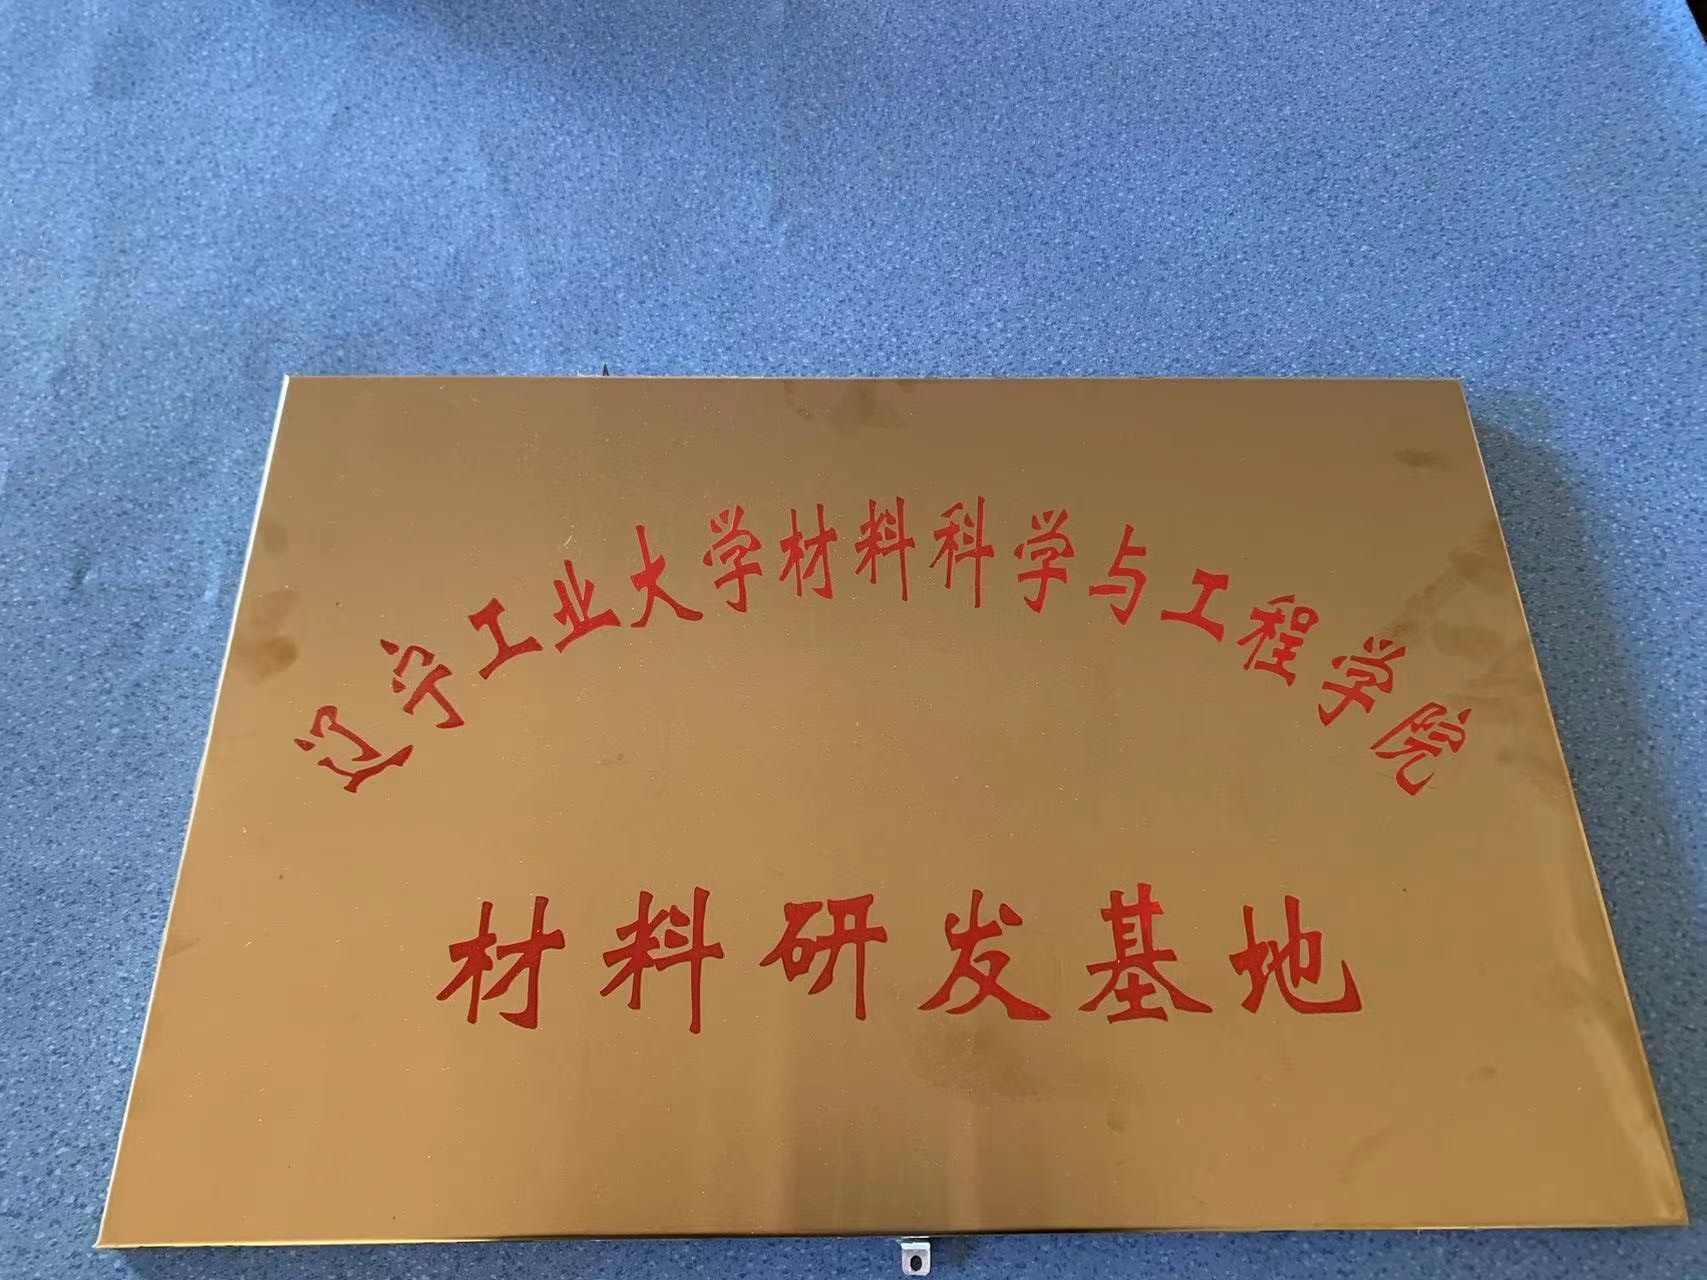 辽宁工业大学材料科学与工程学院
材料研发基地